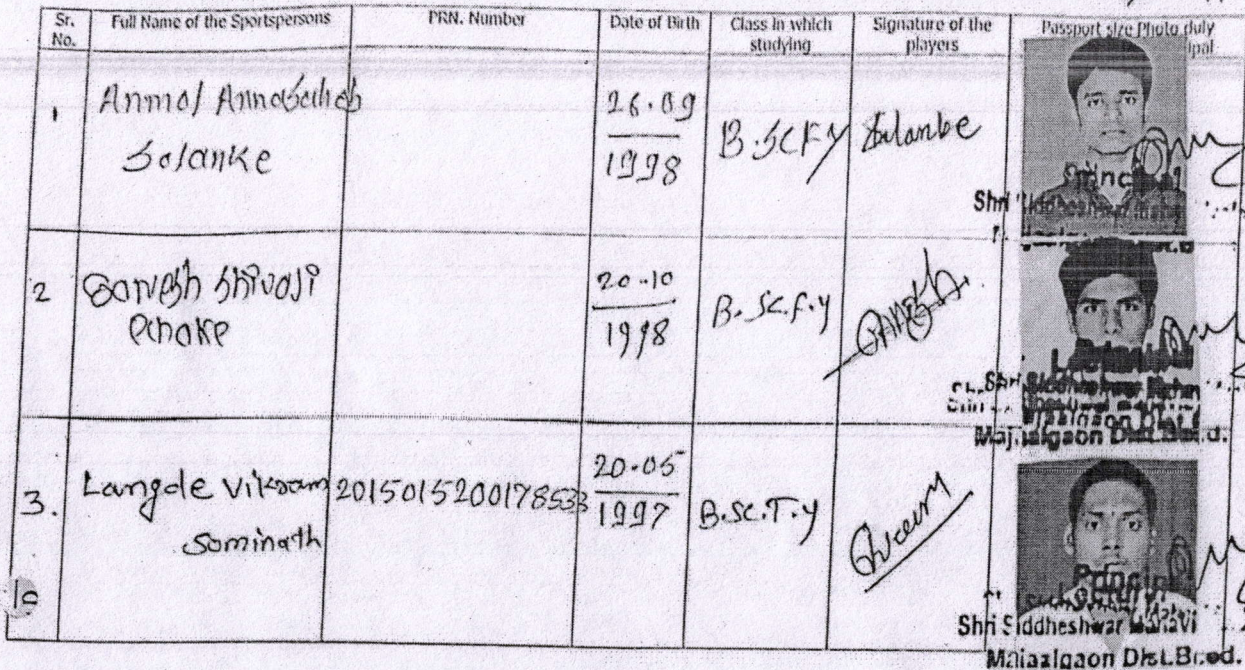 Sr. No. Full Name of the Sportspersons PRN. Number Date of Birth Class in which studying Signature of the players Passport size Photo duly
ipal
1 Anmol Annasaheb Solanke 26.09 1998 B.Sc F y Solanke
Principal
Shri Siddheshwar
2 Ganesh Shivaji 20.10 1998 B.Sc.F.y
Shri Siddheshwar
Majalgaon Dist.Beed.
3. Langde Vikram Sominath 2015015200178533 20.05 1997 B.Sc.T.y
Principal
Shri Siddheshwar Mahavi
Majalgaon Dist.Beed.